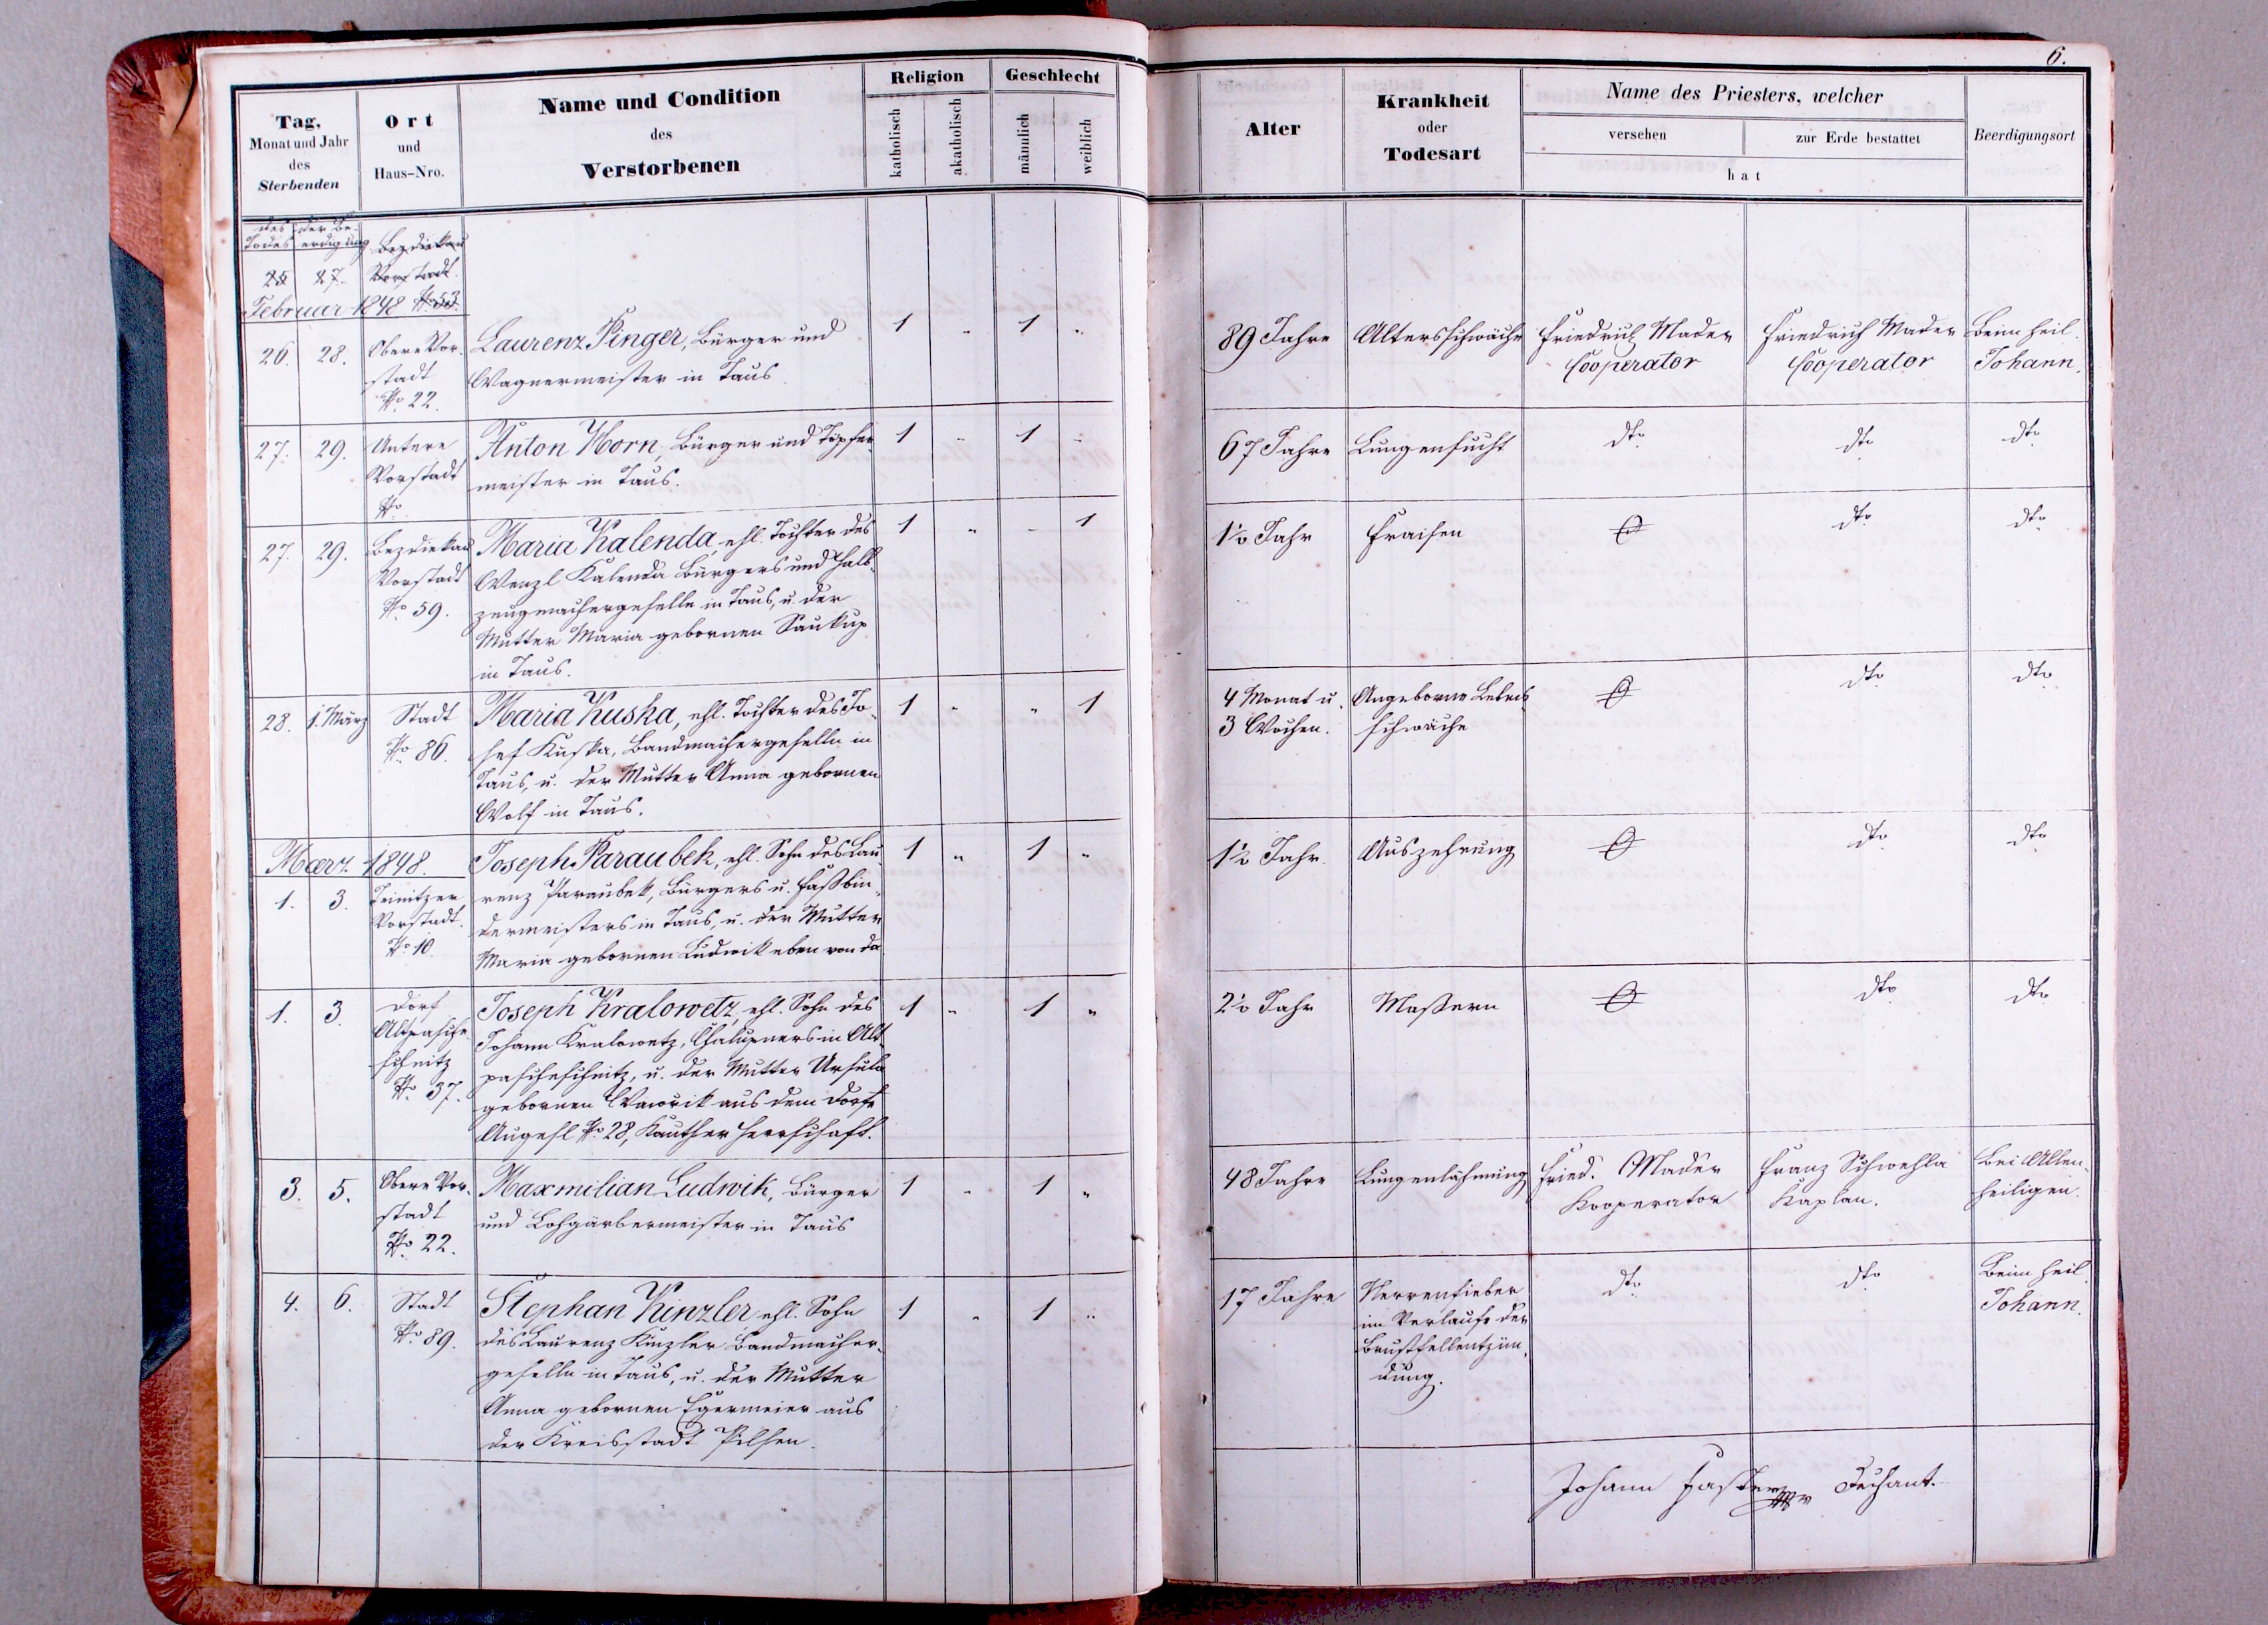 6.
Tag,
Monat und Jahr
des
Sterbenden
Ort
und
Haus-Nro.
Name und Condition
des
Verstorbenen
Religion
katholisch
akatholisch
Geschlecht
männlich
weiblich
Alter
Krankheit
oder
Todesart
Name des Priesters, welcher
versehen
zur Erde bestattet
hat
Beerdigungsort
des Todes
der Be-
erdigung
25 27.
Bezdiekau
Vorstadt
No 53.
Februar 1848
26. 28.
Obere Vor-
stadt
No 22.
Laurenz Pinger, Bürger und
Wagnermeister in Taus
1 „ 1 „
89 Jahre
Altersschwäche
Friedrich Mader
Cooperator
Friedrich Mader
Cooperator
Beim heil.
Johann.
27. 29.
Untere
Vorstadt
No
Anton Horn, Bürger und Töpfer-
meister in Taus.
1 „ 1 „
67 Jahre
Lungensucht
dto
dto
dto
27. 29.
Bezdiekau
Vorstadt
No 59.
Maria Kalenda, ehl. Tochter des
Wenzl Kalenda Bürgers und Halb-
zeugmachergeselle in Taus, u. der
Mutter Maria gebornen Saukup
in Taus.
1 „ „ 1
1½ Jahr
Fraisen
dto
dto
28. 1. März
Stadt
No 86.
Maria Kuska, ehl. Tochter des Jo-
sef Kuska, Bandmachergeselle in
Taus, u. der Mutter Anna gebornen
Wolf in Taus.
1 „ „ 1
4 Monat u.
3 Wochen.
Angeborne Lebens-
schwäche
dto
dto
Maerz 1848.
1. 3.
Teinitzer
Vorstadt.
No 10.
Joseph Paraubek, ehl. Sohn des Lau-
renz Paraubek, Bürgers u. Faßbin-
dermeisters in Taus, u. der Mutter
Maria gebornen Ludwik eben von da
1 „ 1 „
1½ Jahr.
Auszehrung
dto
dto
1. 3.
Dorf
Altpasche-
schnitz
No 37.
Joseph Kralowetz, ehl. Sohn des
Johann Kralowetz, Chalupners in Alt-
pascheschnitz, u. der Mutter Ursula
gebornen Wawrik aus dem Dorfe
Augezl No 28, Kauther Herrschaft.
1 „ 1 „
2½ Jahr
Maßern
dto
dto
3. 5.
Obere Vor-
stadt
No 22.
Maxmilian Ludwik, Bürger
und Lohgärbermeister in Taus
1 „ 1 „
48 Jahre
Lungenlähmung
Fried. Mader
Kooperator
Franz Schwehla
Kaplan.
Bei Allen-
heiligen.
4. 6.
Stadt
No 89.
Stephan Kinzler, ehl. Sohn
des Laurenz Kinzler Bandmacher-
geselle in Taus, u. der Mutter
Anna gebornen Egermeier aus
der Kreisstadt Pilsen.
1 „ 1 „
17 Jahre
Nervenfieber
im Verlaufe der
Brustfellentzün-
dung.
dto
dto
Beim heil.
Johann.
Johann Faster Dechant.